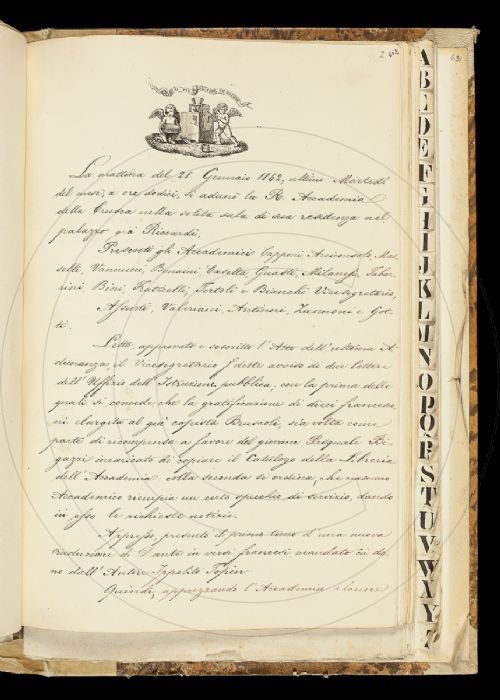 613
La mattina del 28 Gennaio 1862, ultimo Martedì
del mese, a ore dodici, si adunò la R. Accademia
della Crusca nella solita sala di sua residenza nel
palazzo già Riccardi.
Presenti gli Accademici Capponi, Arciconsolo, Mas-
selli, Vannucci, Busacca, Casella, Guasti, Milanesi, Tabar-
rini, Bini, Tortoli e Bianchi Vicesegretario,
Assenti, Valeriani, Antinori, Zannoni e Got-
ti.
Letto, approvato e soscritto l'Atto dell'ultima A-
dunanza, il Vicesegretario dette avviso di due lettere
dell'Uffizio dell'Istruzione pubblica, con la prima delle
quali si concede che la gratificazione di dieci francesco-
ni elargita al già copista Bruscoli, sia volta come
parte di ricompensa a favore del giovane Pasquale Bi-
gazzi incaricato di copiare il Catalogo della Libreria
dell'Accademia: colla seconda si ordina, che nessuno
Accademico riempia un certo specchio di servizio, dando
in esso le richieste notizie.
Appresso presentò il primo tomo d'una nuova
traduzione di Dante in versi francesi, mandato in do-
no dall'Autore Ippolito Topin
Quindi, apprezzando l'Accademia alcune
631
A
B
C
D
E
F
G
H
I
J
K
L
M
N
O
P
Q
R
S
T
U
V
W
X
Y
Z